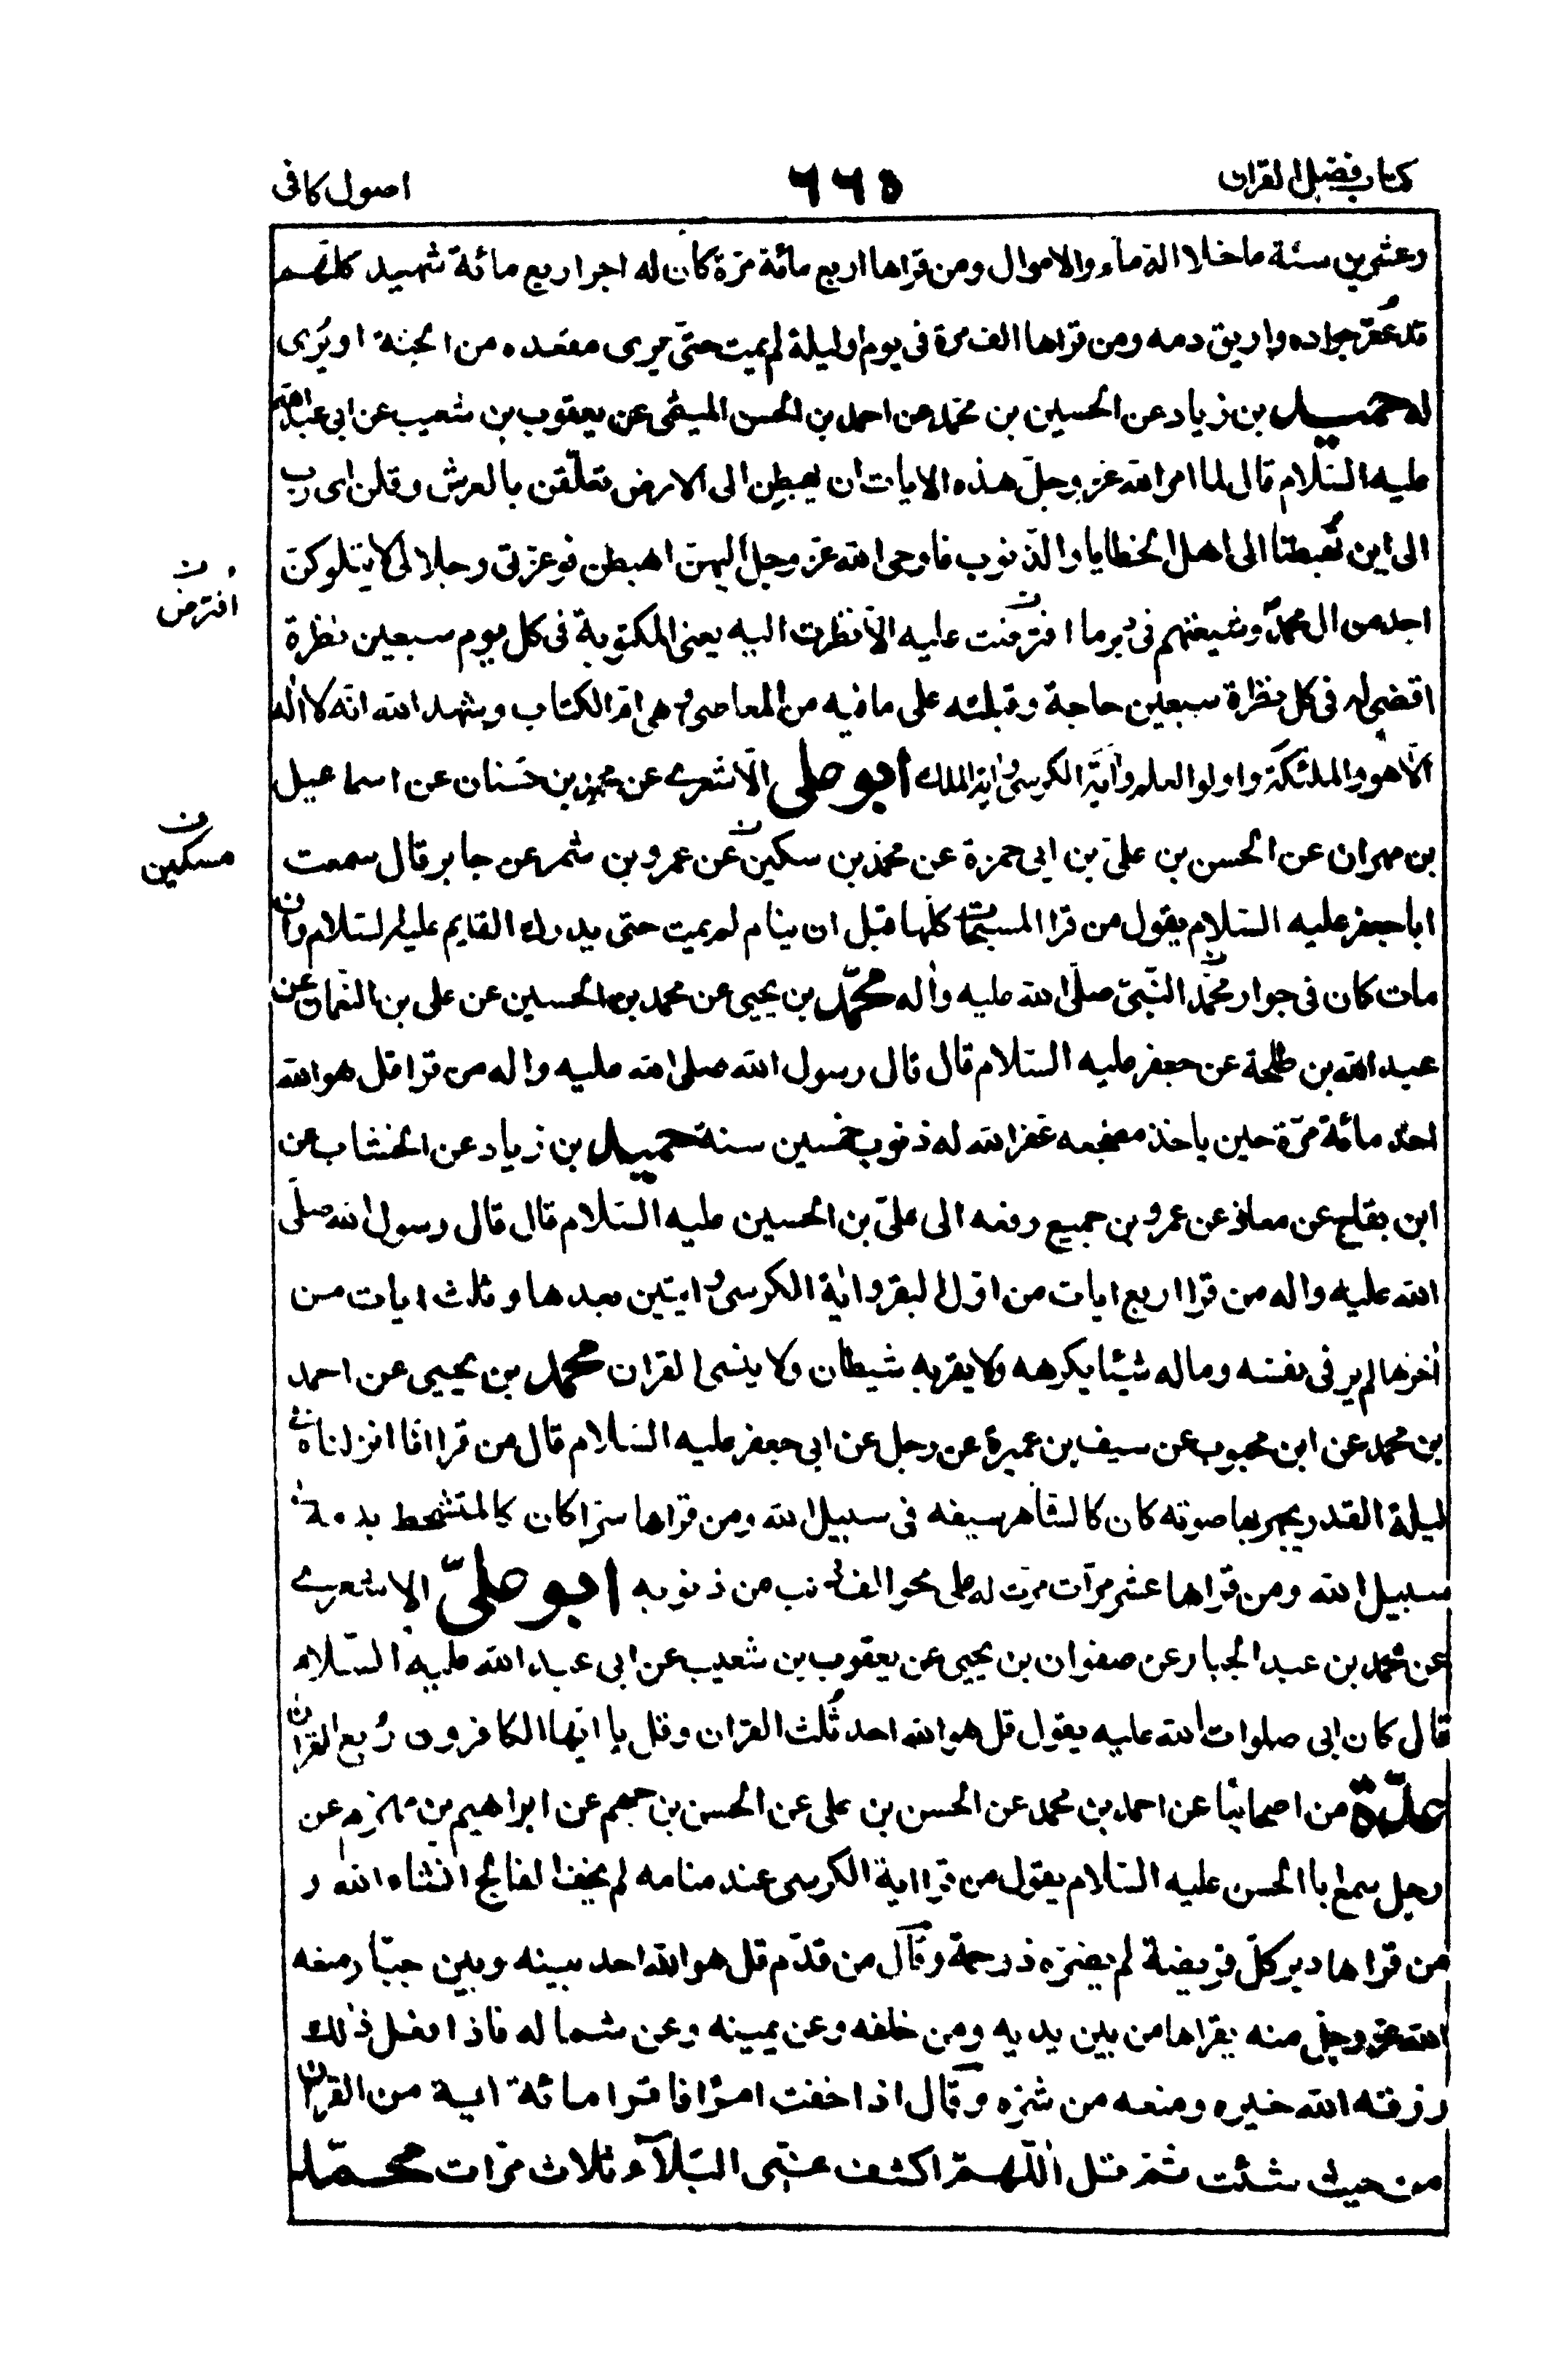 كتاب فضل القران
٦٦٥
اصول كافى
وعشرين سنة ما خلا الدّماء والاموال ومن قراها اربع مائة مرّة كان له اجر اربع مائة شهيد كلّهم
قد عُقر جواده واريق دمه ومن قراها الف مرة فى يوم او ليلة لم يمت حتّى يرى مقعده من الجنة او يُرى
له حميد بن زياد عن الحسين بن محمّد عن احمد بن الحسن الميثمى عن يعقوب بن شعيب عن ابى عبد الله
عليه السّلام قال لما امر الله عزّ وجلّ هذه الايات ان يهبطن الى الارض تعلّقن بالعرش وقلن اى ربّ
الى اين تُهبطنا الى اهل الخطايا والذّنوب فاوحى الله عزّ وجل اليهنّ اهبطن فوعزتى وجلالى لا يتلوكنّ
احد من ال محمّد وشيعتهم فى دبر ما افترضت عليه الّا نظرت اليه يعنى المكتوبة فى كل يوم سبعين نظرة
افترض ن
اقضى له فى كل نظرة سبعين حاجة وقبلته على ما فيه من المعاصى وهى امّ الكتاب وشهد الله انّه لا اله
الّا هو والملئكة واولوا العلم واية الكرسىّ واية الملك ابو على الّاشعرى عن محمد بن حسّان عن اسماعيل
بن مهران عن الحسن بن علىّ بن ابى حمزة عن محمّد بن سكين عن عمرو بن شمر عن جابر قال سمعت
مسكين ن
ابا جعفر عليه السّلام يقول من قرا المسبّحات كلّها قبل ان ينام لم يمت حتى يدرك القايم عليه السّلام وان
مات كان فى جوار محمّد النّبىّ صلّى الله عليه واٰله محمّد بن يحيى عن محمد بن الحسين عن على بن النعمان عن
عبد الله بن طلحة عن جعفر عليه السّلام قال قال رسول الله صلى الله عليه واله من قرا قل هو الله
احد مائة مرّة حين ياخذ مضجعه غفر الله له ذنوب خمسين سنة حميد بن زياد عن الخشاب عن
ابن بقاح عن معاذ عن عمرو بن جميع رفعه الى علىّ بن الحسين عليه السّلام قال قال رسول الله صلّى
الله عليه واله من قرا اربع ايات من اوّل البقرة واية الكرسىّ وايتين بعدها وثلث ايات من
اٰخرها لم ير فى نفسه وماله شيئا يكرهه ولا يقربه شيطان ولا ينسى القران محمد بن يحيى عن احمد
بن محمد عن ابن محبوب عن سيف بن عميرة عن رجل عن ابى جعفر عليه السّلام قال من قرا انّا انزلناه فى
ليلة القدر يجهر بها صوته كان كالشّاهر سيفه فى سبيل الله ومن قراها سرّا كان كالمتشحط بدمه فى
سبيل الله ومن قراها عشر مرّات مرّت له على محو الف ذنب من ذنوبه ابو علىّ الاشعرى
عن محمد بن عبد الجبار عن صفوان بن يحيى عن يعقوب بن شعيب عن ابى عبد الله عليه السّلام
قال كان ابى صلوات الله عليه يقول قل هو الله احد ثُلث القران وقل يا ايّها الكافرون رُبع القران
عدّة من اصحابنا عن احمد بن محمد عن الحسن بن على عن الحسن بن جهم عن ابراهيم بن مهزم عن
رجل سمع ابا الحسن عليه السّلام يقول من قرا اية الكرسى عند منامه لم يخف الفالج انشاء الله و
من قراها دبر كلّ فريضة لم يضرّه ذو حمة وقال من قدّم قل هو الله احد بينه وبين جبّار منعه
الله عزّ وجلّ منه يقراها من بين يديه ومن خلفه وعن يمينه وعن شماله فاذا فعل ذٰلك
رزقه الله خيره ومنعه من شرّه وقال اذا خفت امرًا فاقرا مائة اية من القران
من حيث شئت ثمّ قل اللّٰهمّ اكشف عنّى البلآء ثلاث مرّات محمّد